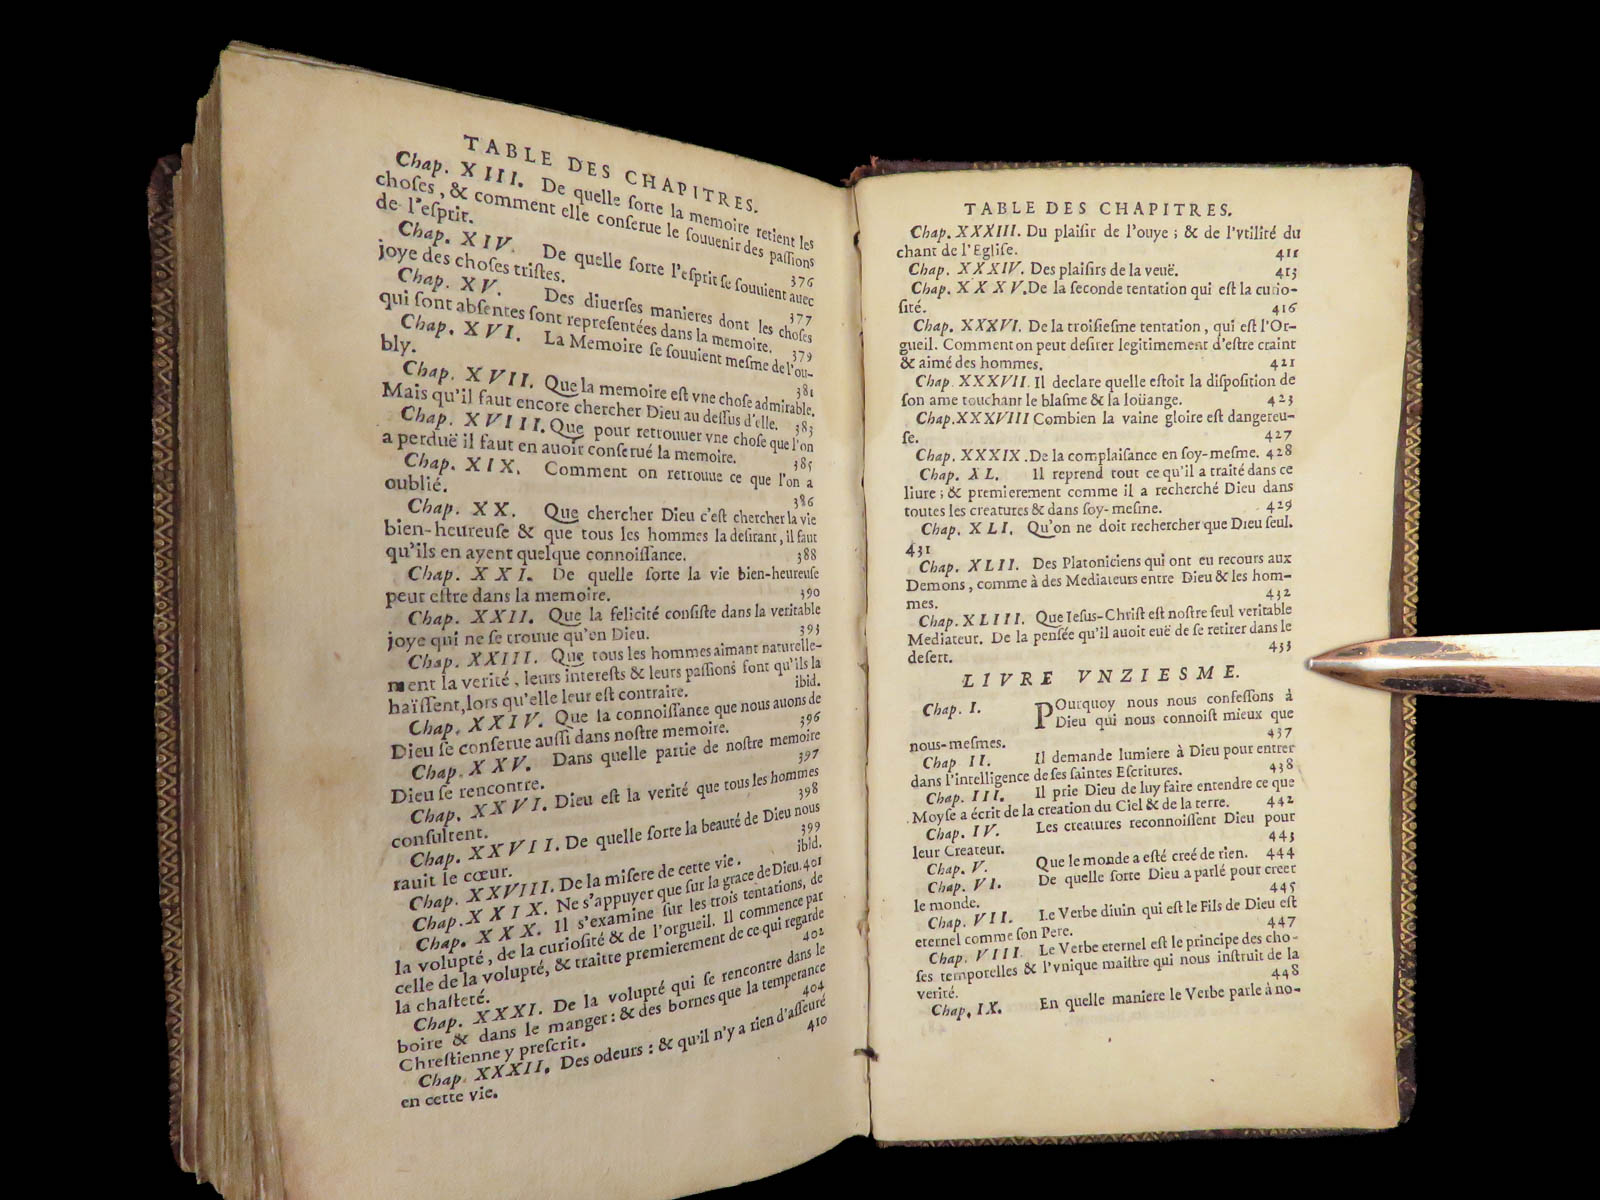 TABLE DES CHAPITRES.
Chap. XIII. De quelle ſorte la memoire retient les
choſes, & comment elle conſerue le ſouuenir des paſſions
de l'eſprit. 376
Chap. XIV. De quelle ſorte l'eſprit ſe ſouuient auec
joye des choſes triſtes. 377
Chap. XV. Des diuerſes manieres dont les choſes
qui ſont abſentes ſont repreſentées dans la memoire. 379
Chap. XVI. La Memoire ſe ſouuient meſme de l'ou-
bly. 381
Chap. XVII. Que la memoire eſt vne choſe admirable.
Mais qu'il faut encore chercher Dieu au deſſus d'elle. 383
Chap. XVIII. Que pour retrouuer vne choſe que l'on
a perduë il faut en auoir conſerué la memoire. 385
Chap. XIX. Comment on retrouue ce que l'on a
oublié. 386
Chap. XX. Que chercher Dieu c'eſt chercher la vie
bien-heureuſe & que tous les hommes la deſirant, il faut
qu'ils en ayent quelque connoiſſance. 388
Chap. XXI. De quelle ſorte la vie bien-heureuſe
peut eſtre dans la memoire. 390
Chap. XXII. Que la felicité conſiſte dans la veritable
joye qui ne ſe trouue qu'en Dieu. 393
Chap. XXIII. Que tous les hommes aimant naturelle-
ment la verité, leurs intereſts & leurs paſſions font qu'ils la
haïſſent, lors qu'elle leur eſt contraire. ibid.
Chap. XXIV. Que la connoiſſance que nous auons de
Dieu ſe conſerue auſſi dans noſtre memoire. 396
Chap. XXV. Dans quelle partie de noſtre memoire
Dieu ſe rencontre. 397
Chap. XXVI. Dieu eſt la verité que tous les hommes
conſultent. 398
Chap. XXVII. De quelle ſorte la beauté de Dieu nous
rauit le cœur. 399
Chap. XXVIII. De la miſere de cette vie. ibid.
Chap. XXIX. Ne s'appuyer que ſur la grace de Dieu. 401
Chap. XXX. Il s'examine ſur les trois tentations, de
la volupté, de la curioſité & de l'orgueil. Il commence par
celle de la volupté, & traitte premierement de ce qui regarde
la chaſteté. 402
Chap. XXXI. De la volupté qui ſe rencontre dans le
boire & dans le manger: & des bornes que la temperance
Chreſtienne y preſcrit. 404
Chap. XXXII. Des odeurs: & qu'il n'y a rien d'aſſeuré
en cette vie. 410
TABLE DES CHAPITRES.
Chap. XXXIII. Du plaiſir de l'ouye; & de l'vtilité du
chant de l'Egliſe. 411
Chap. XXXIV. Des plaiſirs de la veuë. 413
Chap. XXXV. De la ſeconde tentation qui eſt la curio-
ſité. 416
Chap. XXXVI. De la troiſieſme tentation, qui eſt l'Or-
gueil. Comment on peut deſirer legitimement d'eſtre craint
& aimé des hommes. 421
Chap. XXXVII. Il declare quelle eſtoit la diſpoſition de
ſon ame touchant le blaſme & la loüange. 423
Chap. XXXVIII Combien la vaine gloire eſt dangereu-
ſe. 427
Chap. XXXIX. De la complaiſance en ſoy-meſme. 428
Chap. XL. Il reprend tout ce qu'il a traité dans ce
liure; & premierement comme il a recherché Dieu dans
toutes les creatures & dans ſoy-meſme. 429
Chap. XLI. Qu'on ne doit rechercher que Dieu ſeul.
431
Chap. XLII. Des Platoniciens qui ont eu recours aux
Demons, comme à des Mediateurs entre Dieu & les hom-
mes. 432
Chap. XLIII. Que Ieſus-Chriſt eſt noſtre ſeul veritable
Mediateur. De la penſée qu'il auoit euë de ſe retirer dans le
deſert. 433
LIVRE VNZIESME.
Chap. I. POurquoy nous nous confeſſons à
Dieu qui nous connoiſt mieux que
nous-meſmes. 437
Chap II. Il demande lumiere à Dieu pour entrer
dans l'intelligence de ſes ſaintes Eſcritures. 438
Chap. III. Il prie Dieu de luy faire entendre ce que
Moyſe a écrit de la creation du Ciel & de la terre. 442
Chap. IV. Les creatures reconnoiſſent Dieu pour
leur Createur. 443
Chap. V. Que le monde a eſté creé de rien. 444
Chap. VI. De quelle ſorte Dieu a parlé pour creer
le monde. 445
Chap. VII. Le Verbe diuin qui eſt le Fils de Dieu eſt
eternel comme ſon Pere. 447
Chap. VIII. Le Verbe eternel eſt le principe des cho-
ſes temporelles & l'vnique maiſtre qui nous inſtruit de la
verité. 448
Chap. IX. En quelle maniere le Verbe parle à no-